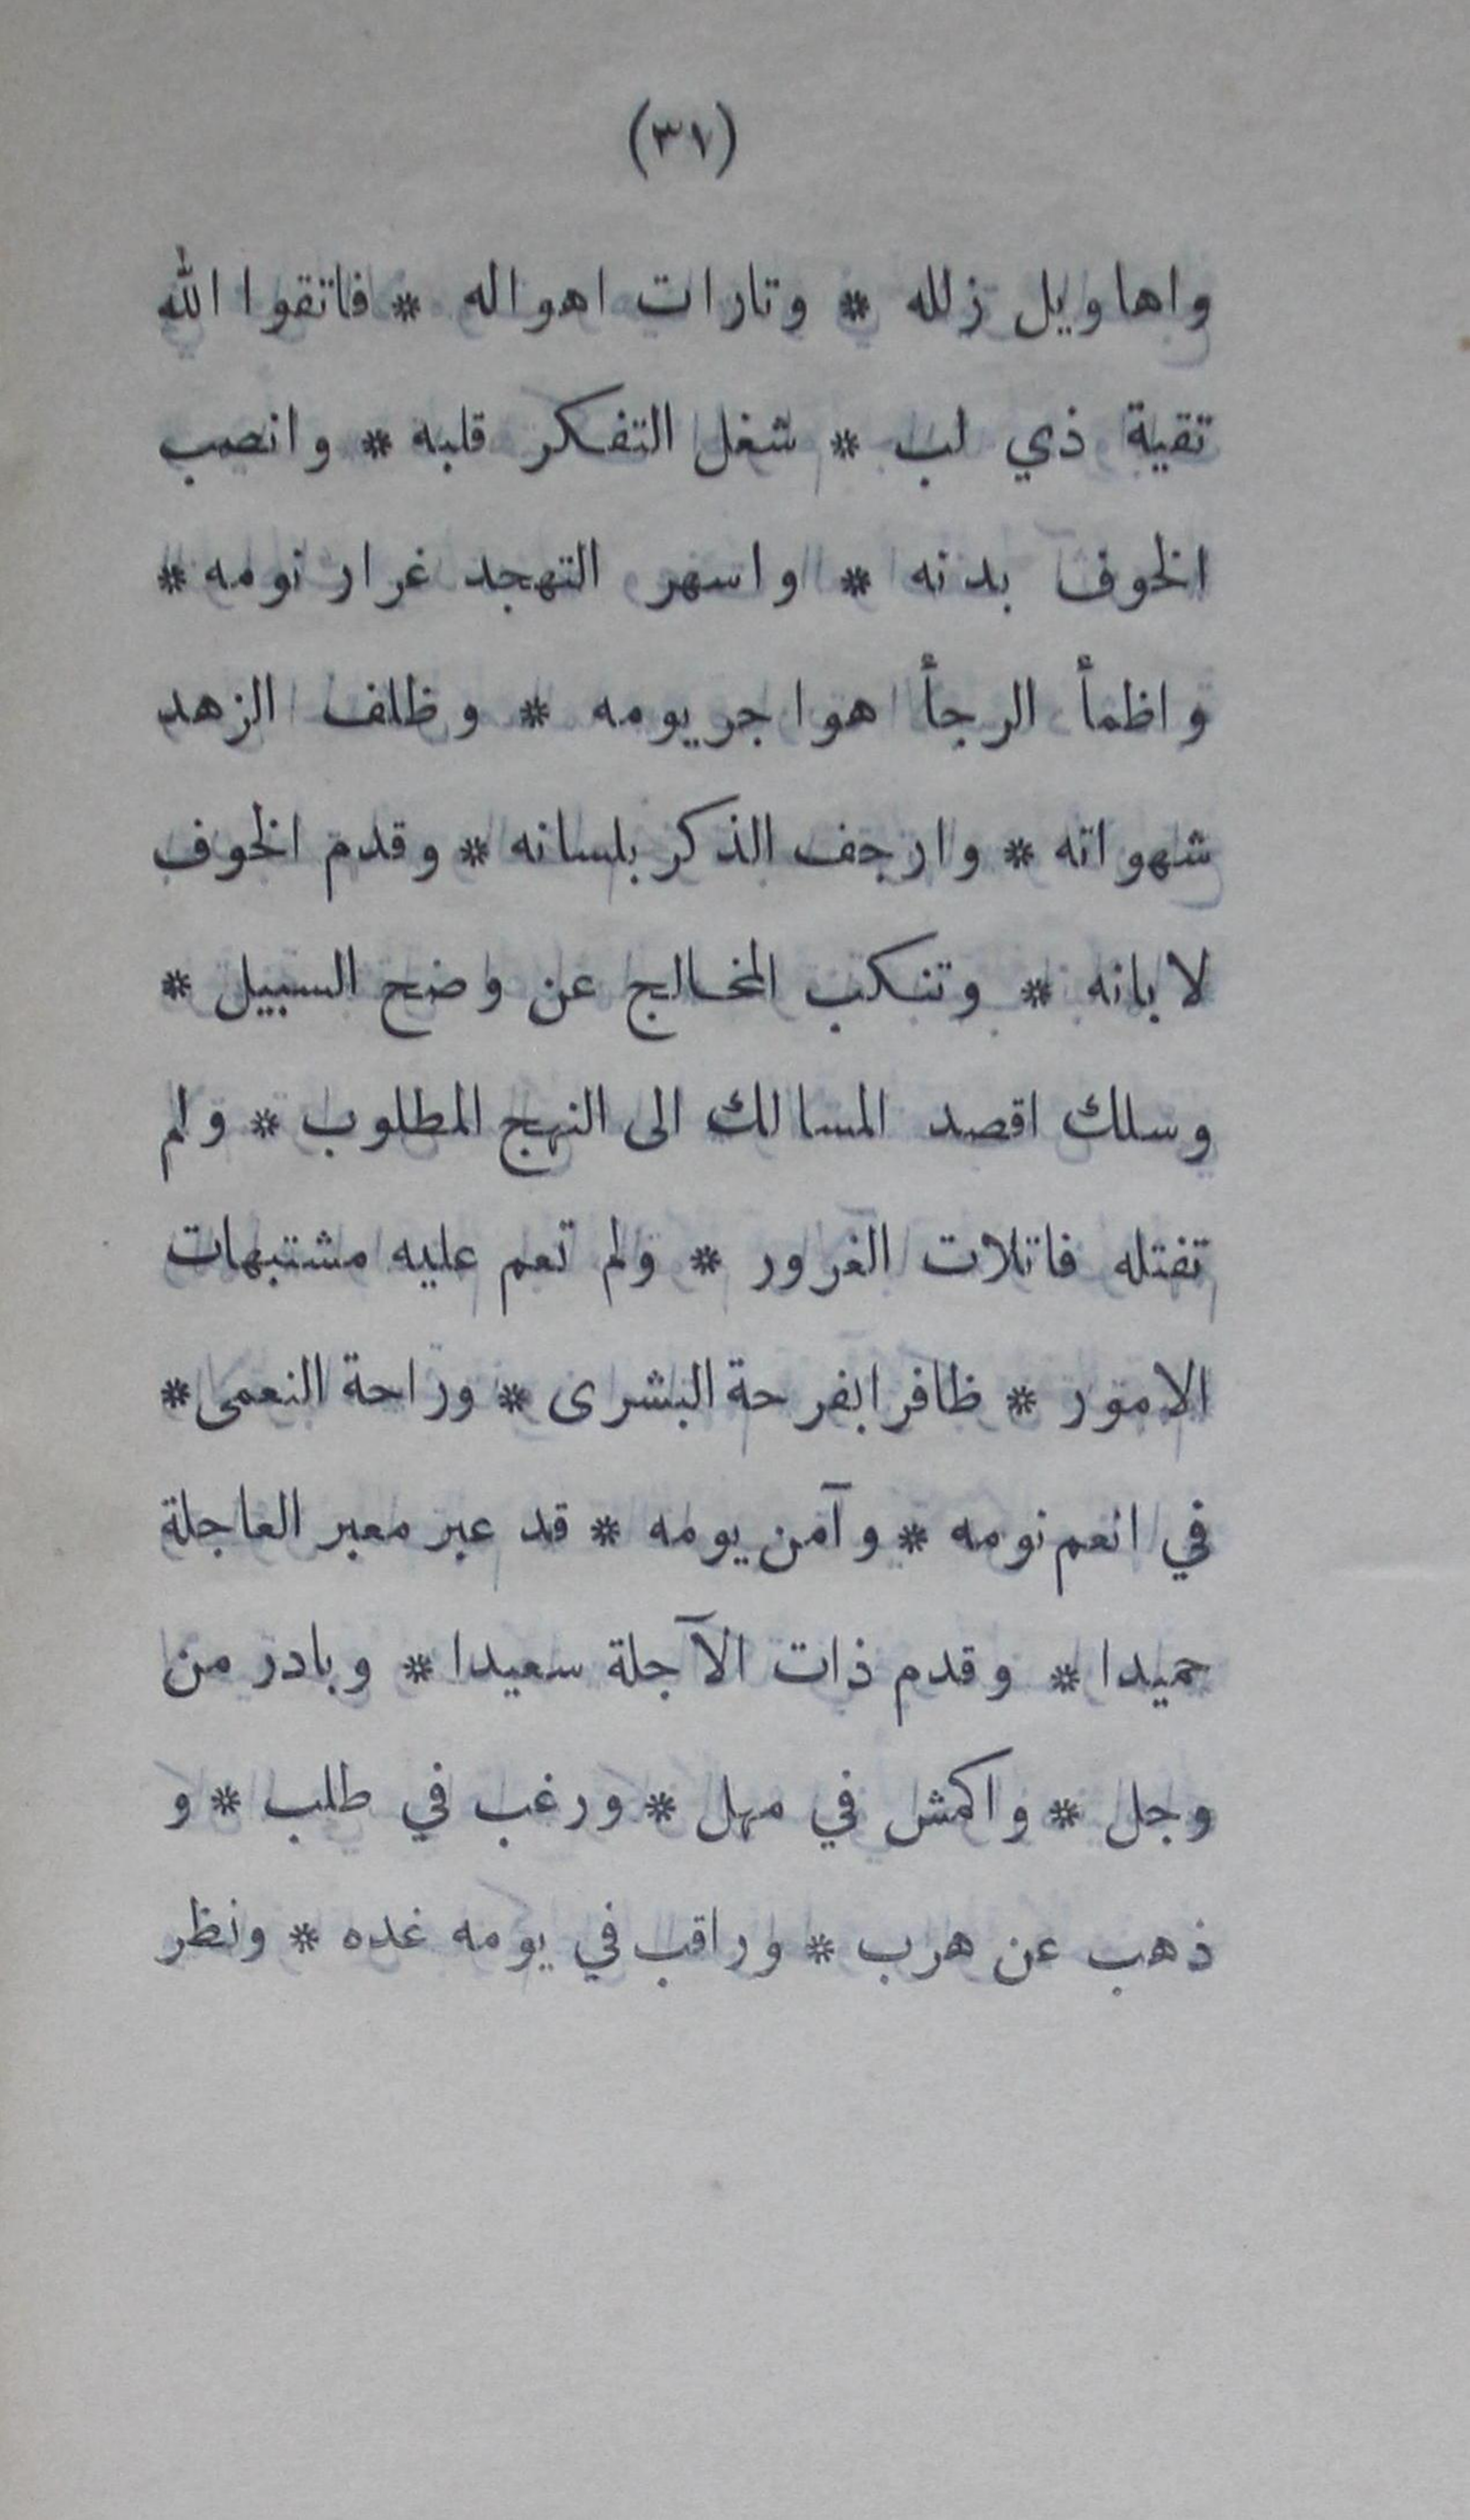 (٣٧)
واهاويل زلله * وتارات اهواله * فاتقوا الله
تقية ذي لب * شغل التفكر قلبه * وانصب
الخوف بدنه * واسهر التهجد غرار نومه *
واظمأ الرجأ هواجر يومه * وظلف الزهد
شهواته * وارجف الذكر بلسانه * وقدم الخوف
لابانه * وتنكب المخالج عن وضح السبيل *
وسلك اقصد المسالك الى النهج المطلوب * ولم
تفتله فاتلات الغرور * ولم تعم عليه مشتبهات
الامور * ظافرا بفرحة البشرى * وراحة النعمى *
في انعم نومه * وآمن يومه * قد عبر معبر العاجلة
حميدا * وقدم ذات الآجلة سعيدا * وبادر من
وجل * واكمش في مهل * ورغب في طلب * و
ذهب عن هرب * وراقب في يومه غده * ونظر